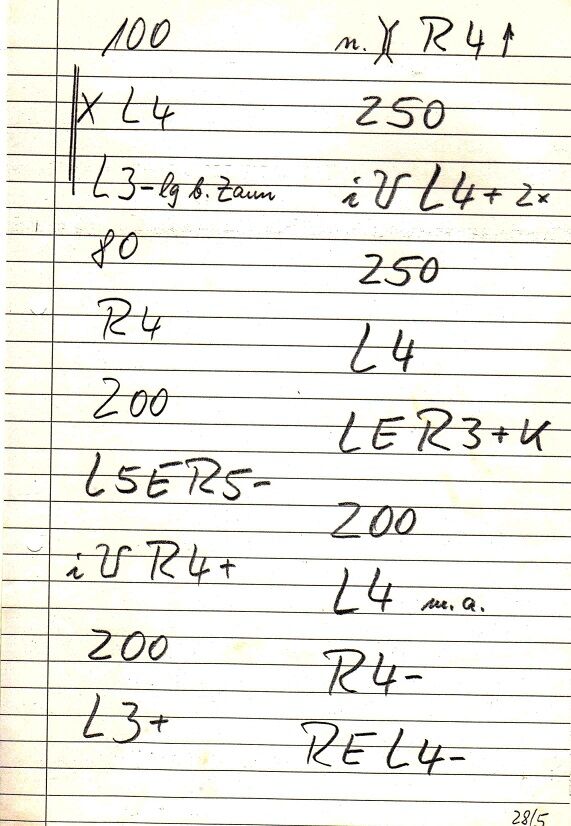 100
X L4
L3-lg b. Zaun
80
R4
200
L5ER5-
iVR4+
200
L3+
n. )( R4↑
250
iVL4+ 2x
250
L4
LER3+K
200
L4 m.a.
R4-
REL4-
28/5